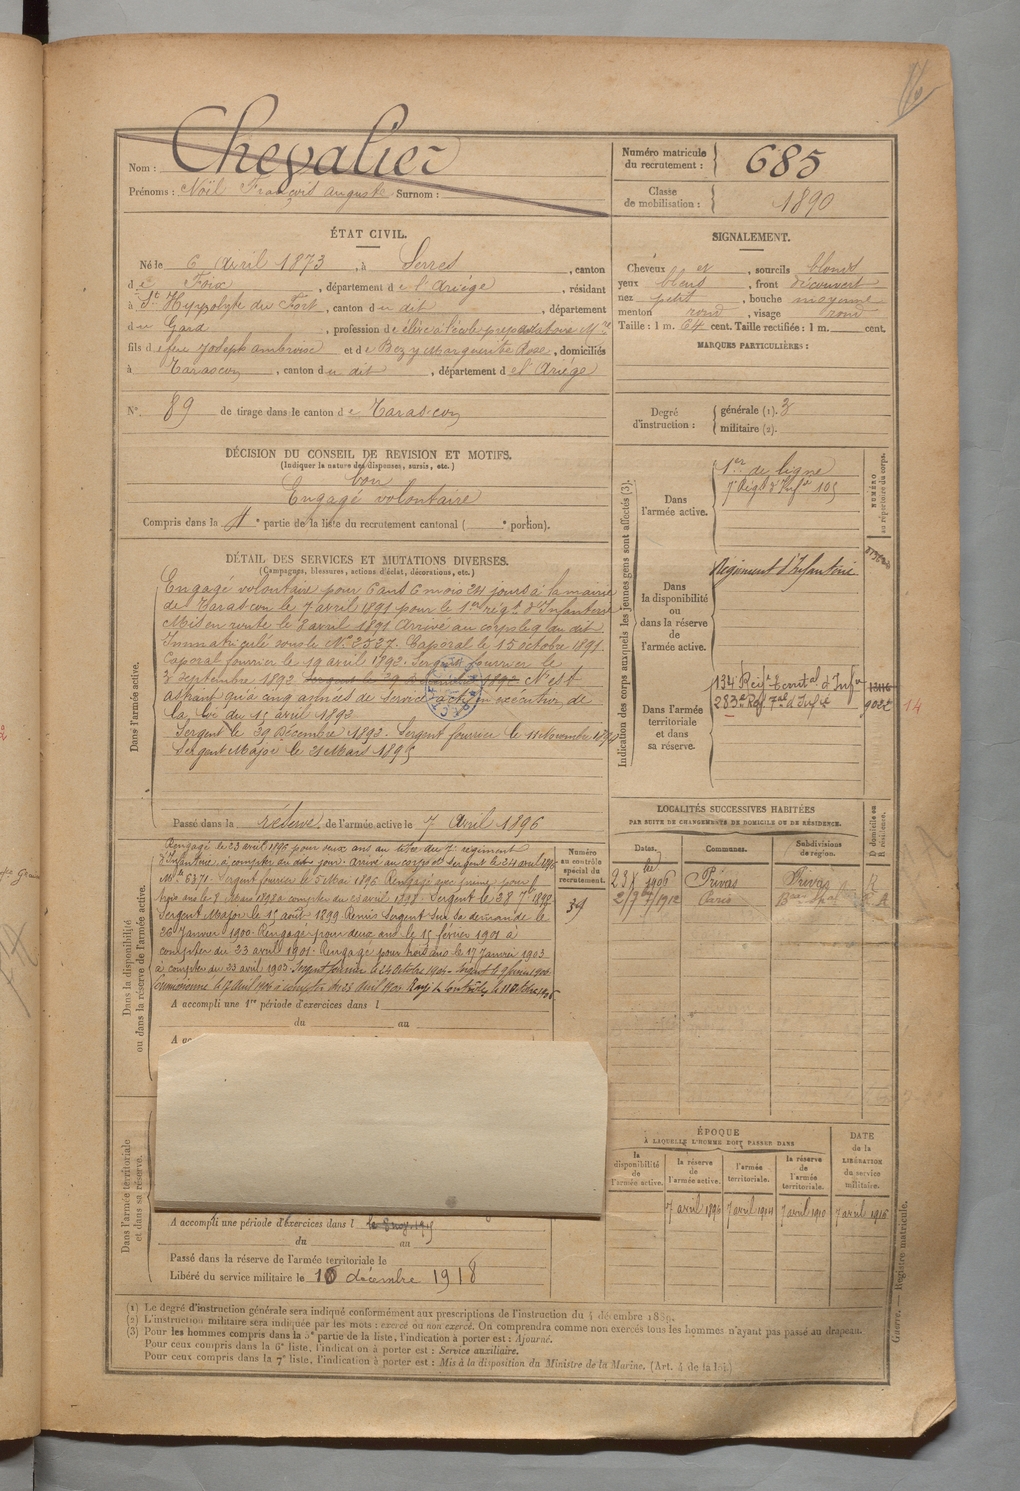 Nom : Chevalier
Prénoms : Noël François Auguste Surnom :
Numéro matricule du recrutement : 685
Classe de mobilisation : 1890
ÉTAT CIVIL.
Né le 6 avril 1873, à Serres, canton
de Foix, département de l'Ariège, résidant
à St Hyppolyte du Fort, canton du dit, département
du Gard, profession de élève à l'école préparatoire Mre
fils de feu Joseph Ambroise et de Bezy Marguerite Rose, domiciliés
à Tarascon, canton du dit, département de l'Ariège
N° 89 de tirage dans le canton de Tarascon
SIGNALEMENT.
Cheveux et, sourcils blonds
yeux bleus, front découvert
nez petit, bouche moyenne
menton rond, visage rond
Taille : 1 m. 64 cent. Taille rectifiée : 1 m. cent.
MARQUES PARTICULIÈRES :
Degré d'instruction : générale (1). 3
militaire (2).
DÉCISION DU CONSEIL DE REVISION ET MOTIFS.
(Indiquer la nature des dispenses, sursis, etc.)
bon
Engagé volontaire
Compris dans la 4e partie de la liste du recrutement cantonal ( e portion).
DÉTAIL DES SERVICES ET MUTATIONS DIVERSES.
(Campagnes, blessures, actions d'éclat, décorations, etc.)
Dans l'armée active.
Engagé volontaire pour 6 ans 6 mois 24 jours à la mairie
de Tarascon le 7 avril 1891 pour le 1er régt d'Infanterie
Mis en route le 8 avril 1891 Arrivé au corps le 9 du dit
Immatriculé sous le No 2527. Caporal le 15 octobre 1891.
Caporal fourrier le 19 avril 1892. Sergent fourrier le
3 Septembre 1892. Sergent le 29 1892 N'est
astreint qu'à cinq années de service actif en exécution de
la loi du 15 avril 1892
Sergent le 29 Décembre 1892. Sergent fourrier le 11 Novembre 1894
Sergent Major le 21 Mars 1895
Passé dans la réserve de l'armée active le 7 Avril 1896
Dans la disponibilité ou dans la réserve de l'armée active.
Rengagé le 23 avril 1896 pour deux ans au titre du 7e régiment
d'Infanterie à compter du dit jour. Arrivé au corps et Sergent le 24 avril 1896
Mle 5371. Sergent fourrier le 5 Mai 1896 Rengagé avec prime pour
trois ans le 1898 à compter du 23 avril 1898. Sergent le 28 7bre 1898
Sergent Major le 15 août 1899 Remis Sergent sur sa demande le
26 Janvier 1900. Rengagé pour deux ans le 15 février 1901 à
compter du 23 avril 1901. Rengagé pour trois ans le 17 Janvier 1903
à compter du 23 avril 1903. Sergent fourrier le 24 Octobre 1904.
Commissionné le avril 1906 à compter du 23 avril 1906 Rayé des Contrôles le 11 Octobre 1906
A accompli une 1re période d'exercices dans l
du au
Numéro au contrôle spécial du recrutement.
Indication des corps auxquels les jeunes gens sont affectés (3).
Dans l'armée active.
1er de ligne
7e Régt d'Infie 105
Dans la disponibilité ou dans la réserve de l'armée active.
Régiment d'Infanterie
Dans l'armée territoriale et dans sa réserve.
134 Regt territal d'Infie
283e Regt Tal d'Infie
9022 14
NUMÉRO au répertoire du corps.
LOCALITÉS SUCCESSIVES HABITÉES
PAR SUITE DE CHANGEMENTS DE DOMICILE OU DE RÉSIDENCE.
Dates. Communes. Subdivisions de région. D domicile ou R résidence.
23 Xbre 1906 Privas Privas R
2/7bre/1912 Paris
ÉPOQUE
À LAQUELLE L'HOMME DOIT PASSER DANS
la disponibilité de l'armée active. la réserve de l'armée active. l'armée territoriale. la réserve de l'armée territoriale. DATE de la LIBÉRATION du service militaire.
7 avril 1896 7 avril 1904 7 avril 1910 7 avril 1916
Dans l'armée territoriale et dans sa réserve.
A accompli une période d'exercices dans l
du au
Passé dans la réserve de l'armée territoriale le
Libéré du service militaire le 10 décembre 1918
(1) Le degré d'instruction générale sera indiqué conformément aux prescriptions de l'instruction du 4 décembre 1889.
(2) L'instruction militaire sera indiquée par les mots : exercé ou non exercé. On comprendra comme non exercés tous les hommes n'ayant pas passé au drapeau.
(3) Pour les hommes compris dans la 5e partie de la liste, l'indication à porter est : Ajourné.
Pour ceux compris dans la 6e liste, l'indication à porter est : Service auxiliaire.
Pour ceux compris dans la 7e liste, l'indication à porter est : Mis à la disposition du Ministre de la Marine. (Art. 4 de la loi.)
Guerre. — Registre matricule.